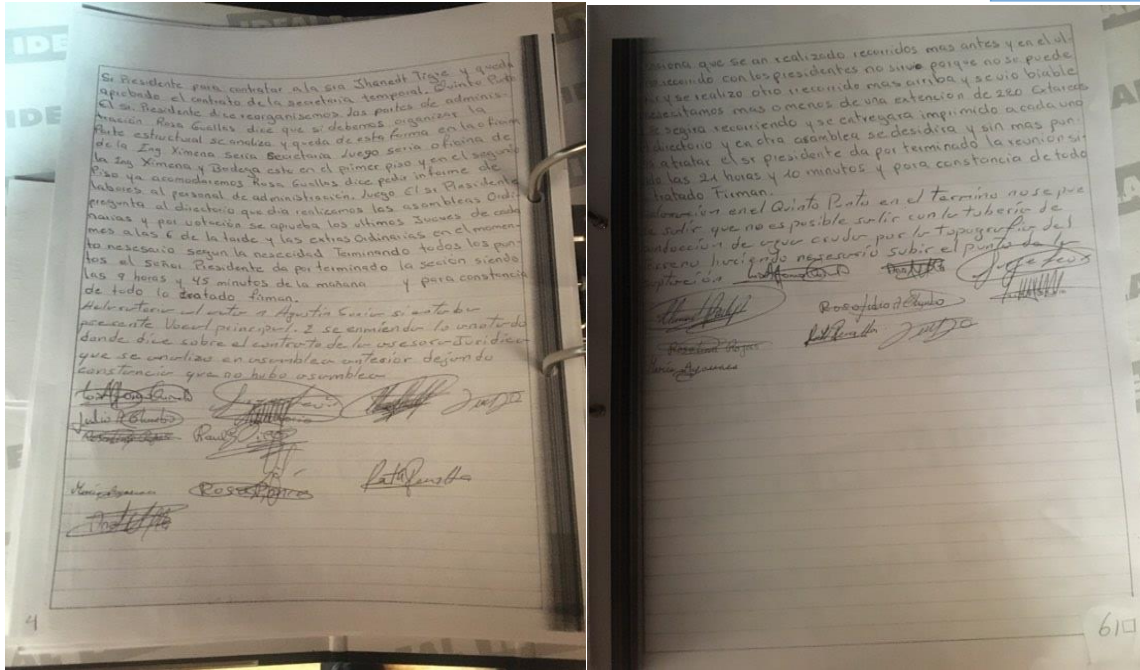 Sr Presidente para contratar a la sra Jhanedt Tigre y queda
aprobado el contrato de la secretaria temporal. Quinto Punto
El sr. Presidente dice reorganisemos los partes de adminis-
tración Rosa Guallas dice que si debemos organizar la
Parte estructural se analiza y queda de esta forma en la oficina
de la Ing Ximena seria Secretaria Luego seria oficina de
la Ing Ximena y Bodega esto en el primer piso y en el segundo
Piso ya acomodaremos Rosa Guallas dice pedir informe de
labores al personal de administración. Luego El sr Presidente
pregunta al directorio que dia realizamos las asambleas Ordi-
narias y por votación se aprueba los ultimos Jueves de cada
mes a las 6 de la tarde y las extras Ordinarias en el momen-
to nescesario segun la nescecidad Terminando todos los pun-
tos el señor Presidente da por terminado la secion siendo
las 9 horas y 45 minutos de la mañana y para constancia
de todo lo tratado firman.
Agustin si estaba
presente Vocal principal. 2 se enmienda lo anotado
donde dice sobre el contrato de la asesora Juridica
que se analizo en asamblea anterior dejando
constancia que no hubo asamblea
Rosa
4
que se an realizado recorridos mas antes y en el ul-
recorrido con los presidentes no sirve porque no se puede
y se realizo otro recorrido mas arriba y se vio biable
mas o menos de una extencion de 280
segira recorriendo y se entregara imprimido a cada uno
directorio y en otra asamblea se desidira y sin mas pun-
a tratar el sr presidente da por terminado la reunión si-
las 21 horas y 10 minutos y para constancia de todo
tratado Firman.
en el Quinto Punto en el termino no se pue
salir que no es posible salir con la tuberia de
de agua cruda por la topografia del
haciendo nesesario subir el punto de
610